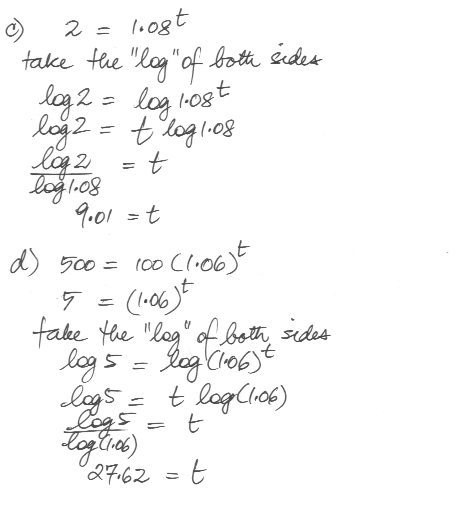 c) 2 = 1.08^t
take the "log" of both sides
log 2 = log 1.08^t
log 2 = t log 1.08
log 2 / log 1.08 = t
9.01 = t
d) 500 = 100 (1.06)^t
5 = (1.06)^t
take the "log" of both sides
log 5 = log (1.06)^t
log 5 = t log (1.06)
log 5 / log (1.06) = t
27.62 = t